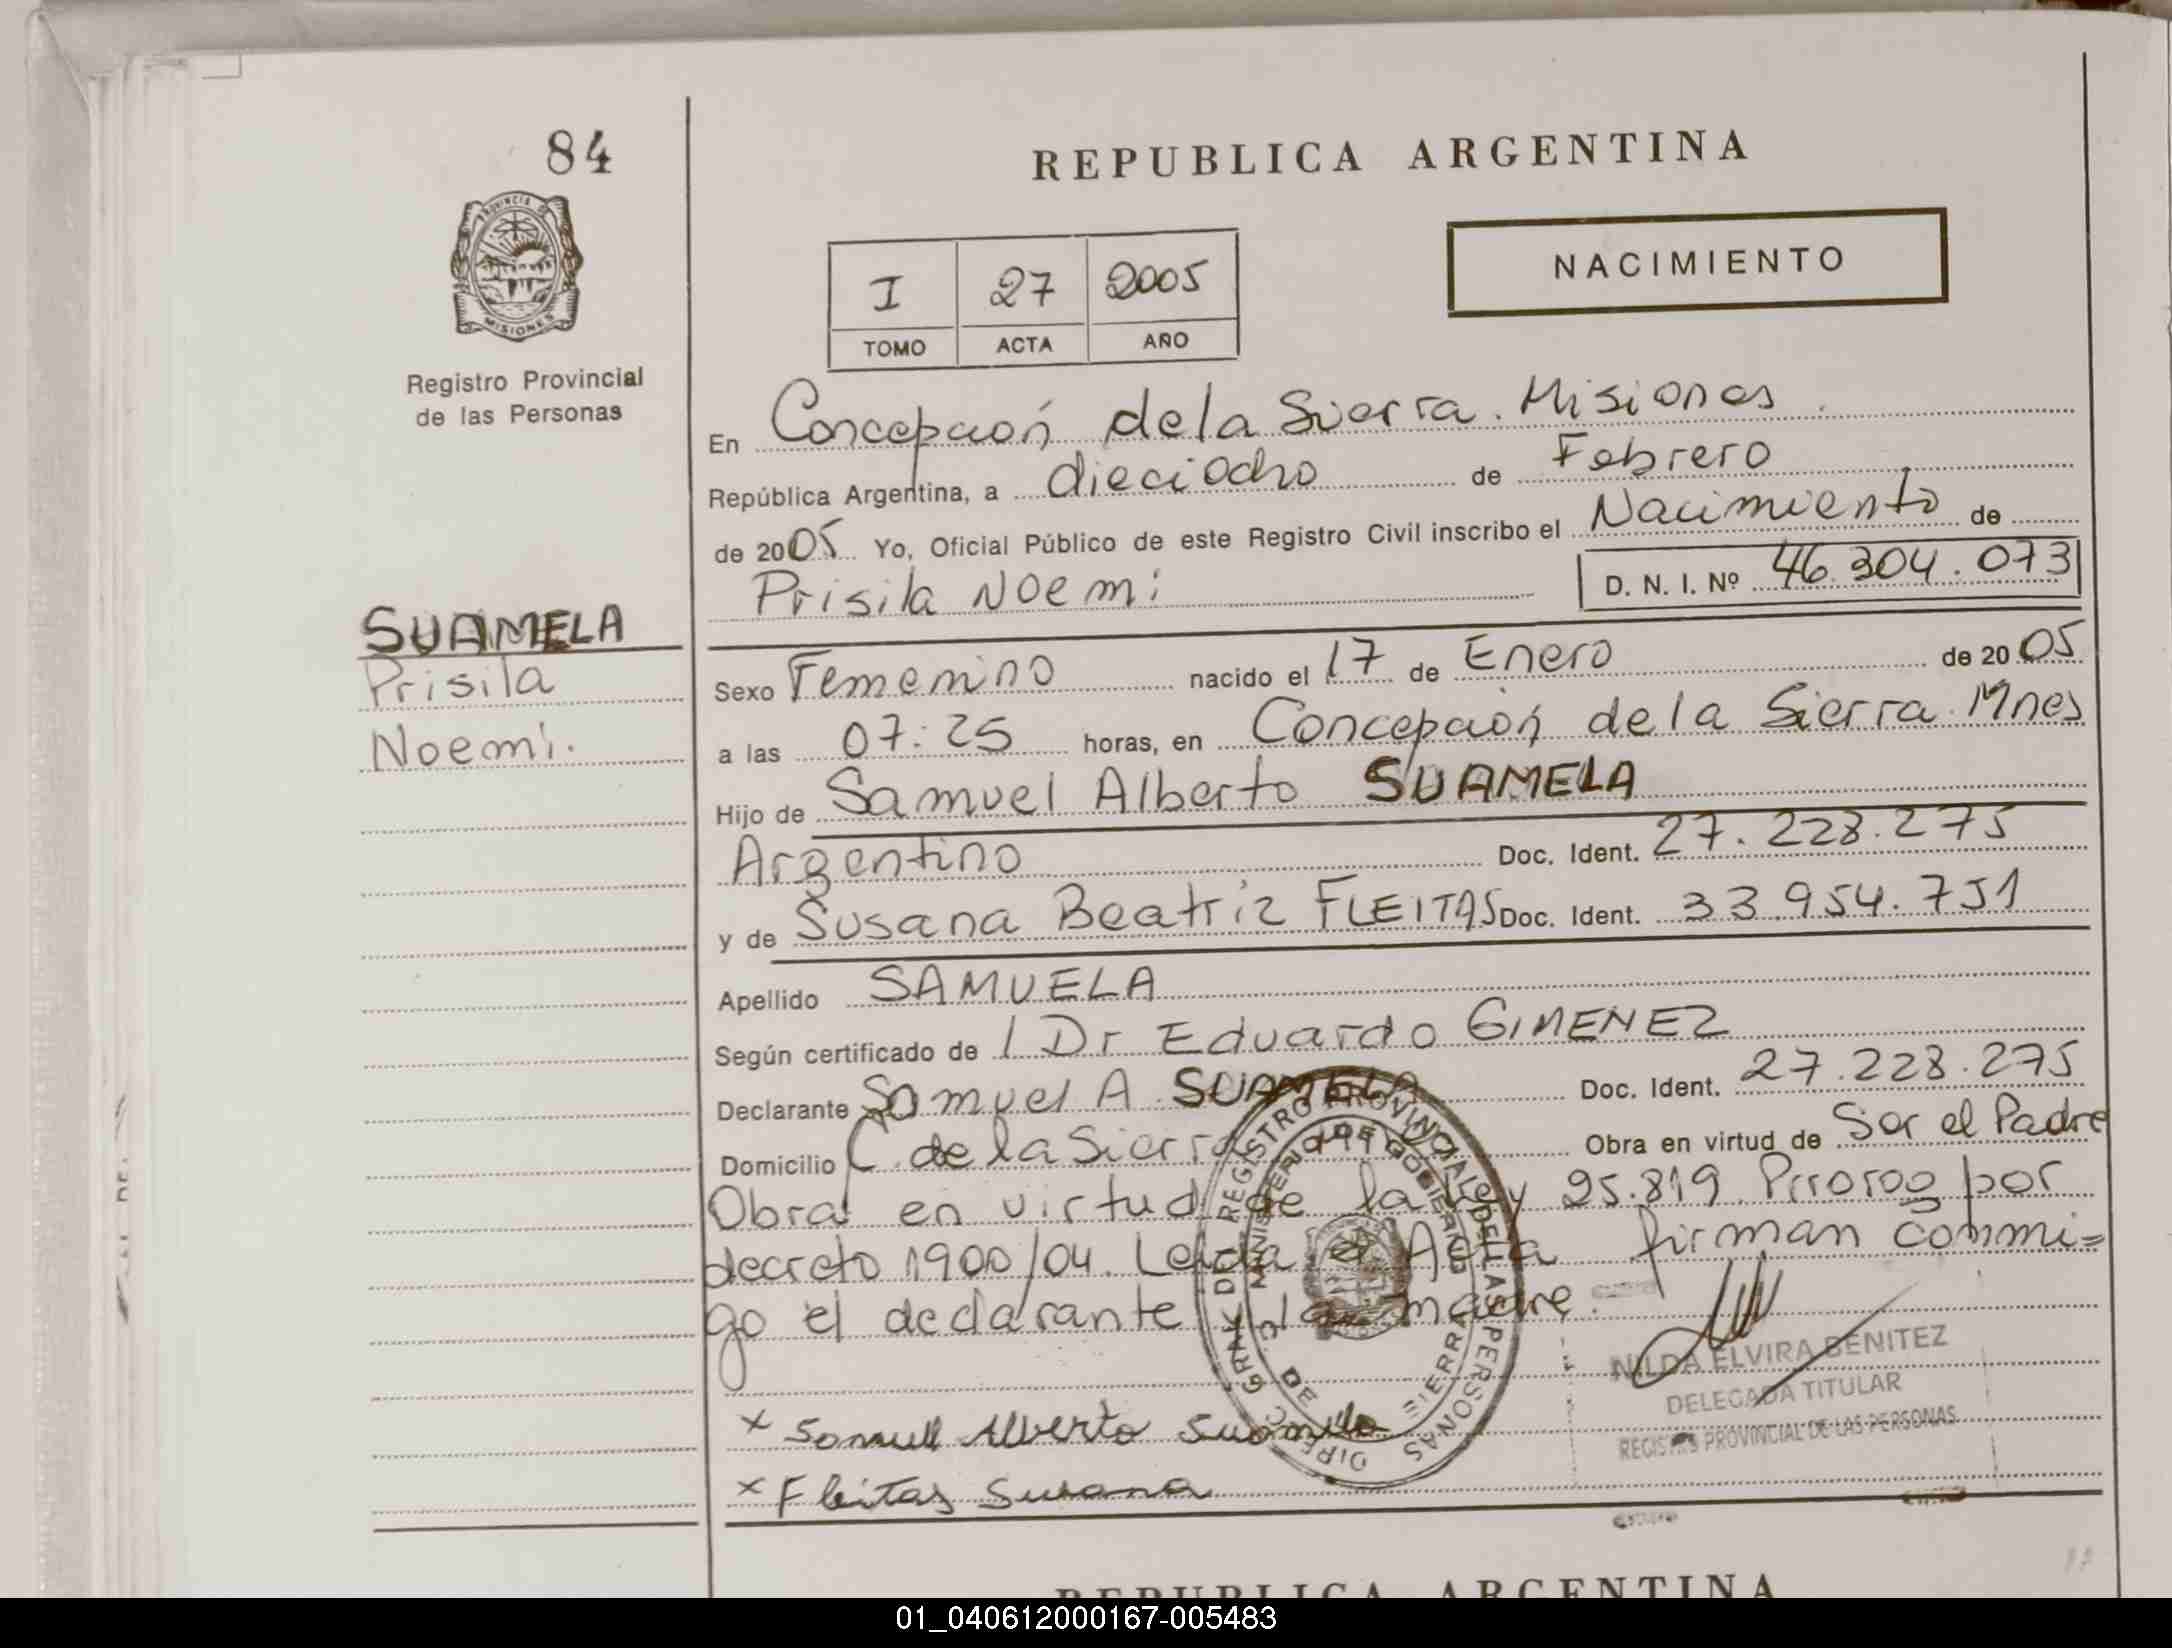 84
PROVINCIA DE
MISIONES
Registro Provincial
de las Personas
REPUBLICA ARGENTINA
I 27 2005
TOMO ACTA AÑO
NACIMIENTO
En Concepción de la Sierra. Misiones.
República Argentina, a dieciocho de Febrero
de 2005 Yo, Oficial Público de este Registro Civil inscribo el Nacimiento de
Prisila Noemi D. N. I. Nº 46.304.073
SUAMELA
Prisila
Noemi.
Sexo Femenino nacido el 17 de Enero de 2005
a las 07:25 horas, en Concepción de la Sierra. Mnes
Hijo de Samuel Alberto SUAMELA
Argentino Doc. Ident. 27.228.275
y de Susana Beatriz FLEITAS Doc. Ident. 33.954.751
Apellido SAMUELA
Según certificado de Dr Eduardo GIMENEZ
Declarante Samuel A. SUAMELA Doc. Ident. 27.228.275
Domicilio C. de la Sierra Obra en virtud de Ser el Padre
Obra en virtud de la Ley 25.819 Prorog por
decreto 1900/04. Leida el Acta firman conmi=
go el declarante la madre.
DIRECC GRAL DEL REGISTRO PROVINCIAL DE LAS PERSONAS
MINISTERIO DE GOBIERNO
C. DE SIERRA
NILDA ELVIRA BENITEZ
DELEGADA TITULAR
REGISTRO PROVINCIAL DE LAS PERSONAS
x Samuel Alberto Suamela
x Fleitas Susana
REPUBLICA ARGENTINA
01_040612000167-005483